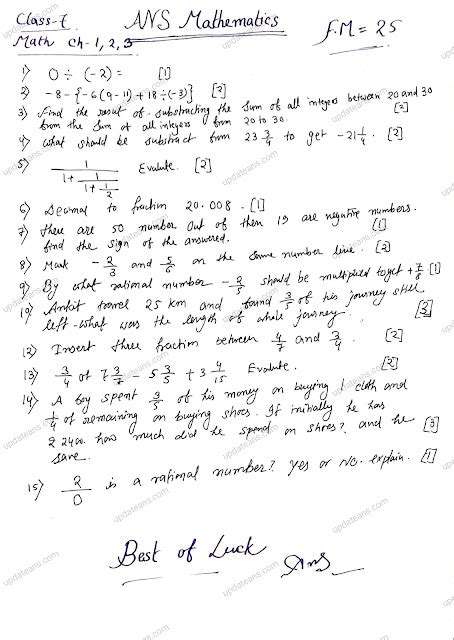 Class-7
ANS Mathematics
F.M = 25
Math ch-1, 2, 3
1) 0 ÷ (-2) = [1]
2) -8 - {-6(9-11) + 18 ÷ (-3)} [2]
3) Find the result of substracting the sum of all integers between 20 and 30
from the sum of all integers from 20 to 30. [2]
4) What should be substract from 23 3/4 to get -21 1/4. [2]
5) 1/(1+1/(1+1/2)) Evalute. [2]
6) Decimal to fraction 20.008. [1]
7) there are 50 number out of then 19 are negative numbers.
find the sign of the answered. [1]
8) Mark -2/3 and 5/6 on the same number line. [2]
9) By what rational number -2/5 should be multiplied to get +7/8 [1]
10) Ankit travel 25 km and found 3/5 of his journey still
left. what was the length of whole journey. [2]
12) Insert three fraction between 4/7 and 3/4. [2]
13) 3/4 of 7 3/7 - 5 3/5 + 3 4/15 Evalute. [2]
14) A boy spent 3/5 of his money on buying 1 cloth and
1/4 of remaining on buying shoes. If initially he has
2400. how much did he spend on shoes? and he [3]
save.
15) 2/0 is a rational number? Yes or No. explain. [1]
Best of Luck
Ans
updateans.com